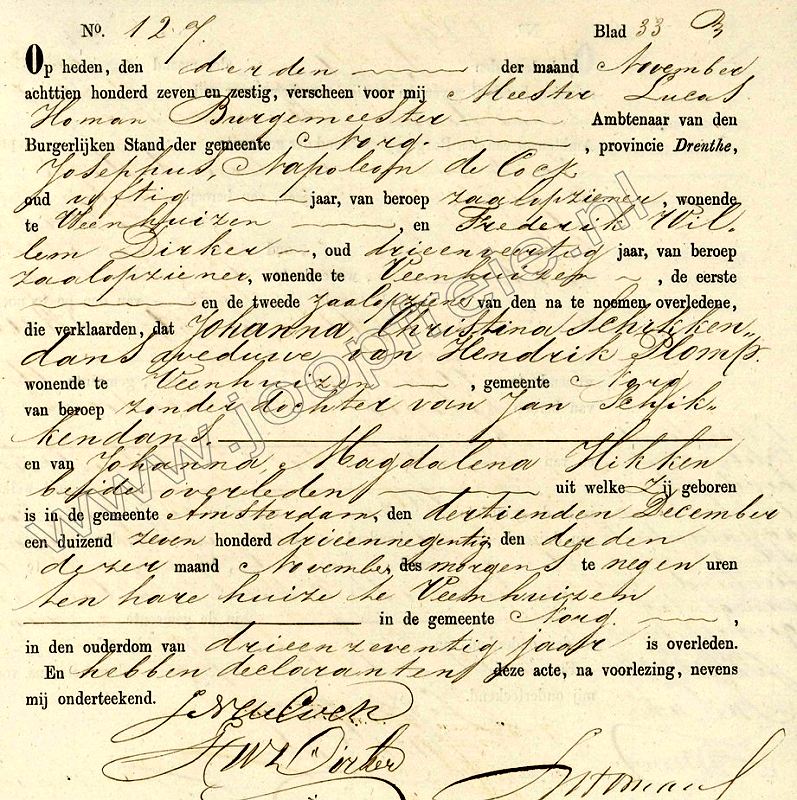 No. 127. Blad 33
Op heden, den derden der maand November
achttien honderd zeven en zestig, verscheen voor mij Meester Lucas
Homan Burgemeester Ambtenaar van den
Burgerlijken Stand der gemeente Norg. , provincie Drenthe,
Josephus, Napoleon de Cock
oud vyftig jaar, van beroep zaalopziener, wonende
te Veenhuizen , en Frederik Wil-
lem Dirker , oud drieenveertig jaar, van beroep
zaalopziener, wonende te Veenhuizen , de eerste
en de tweede zaalopziener van den na te noemen overledene,
die verklaarden, dat Johanna Christina Schikken-
dans weduwe van Hendrik Plomp.
wonende te Veenhuizen , gemeente Norg
van beroep zonder dochter van Jan Schik-
kendans.
en van Johanna Magdalena Hikken
beide overleden uit welke Zij geboren
is in de gemeente Amsterdam, den dertienden December
een duizend zeven honderd drieennegentig, den derden
dezer maand November, des morgens te negen uren
ten hare huize te Veenhuizen
in de gemeente Norg. ,
in den ouderdom van drieenzeventig jaar is overleden.
En hebben declaranten deze acte, na voorlezing, nevens
mij onderteekend.
J N de Cock
F W L Dirker
L Homan
www.joopfreis.nl